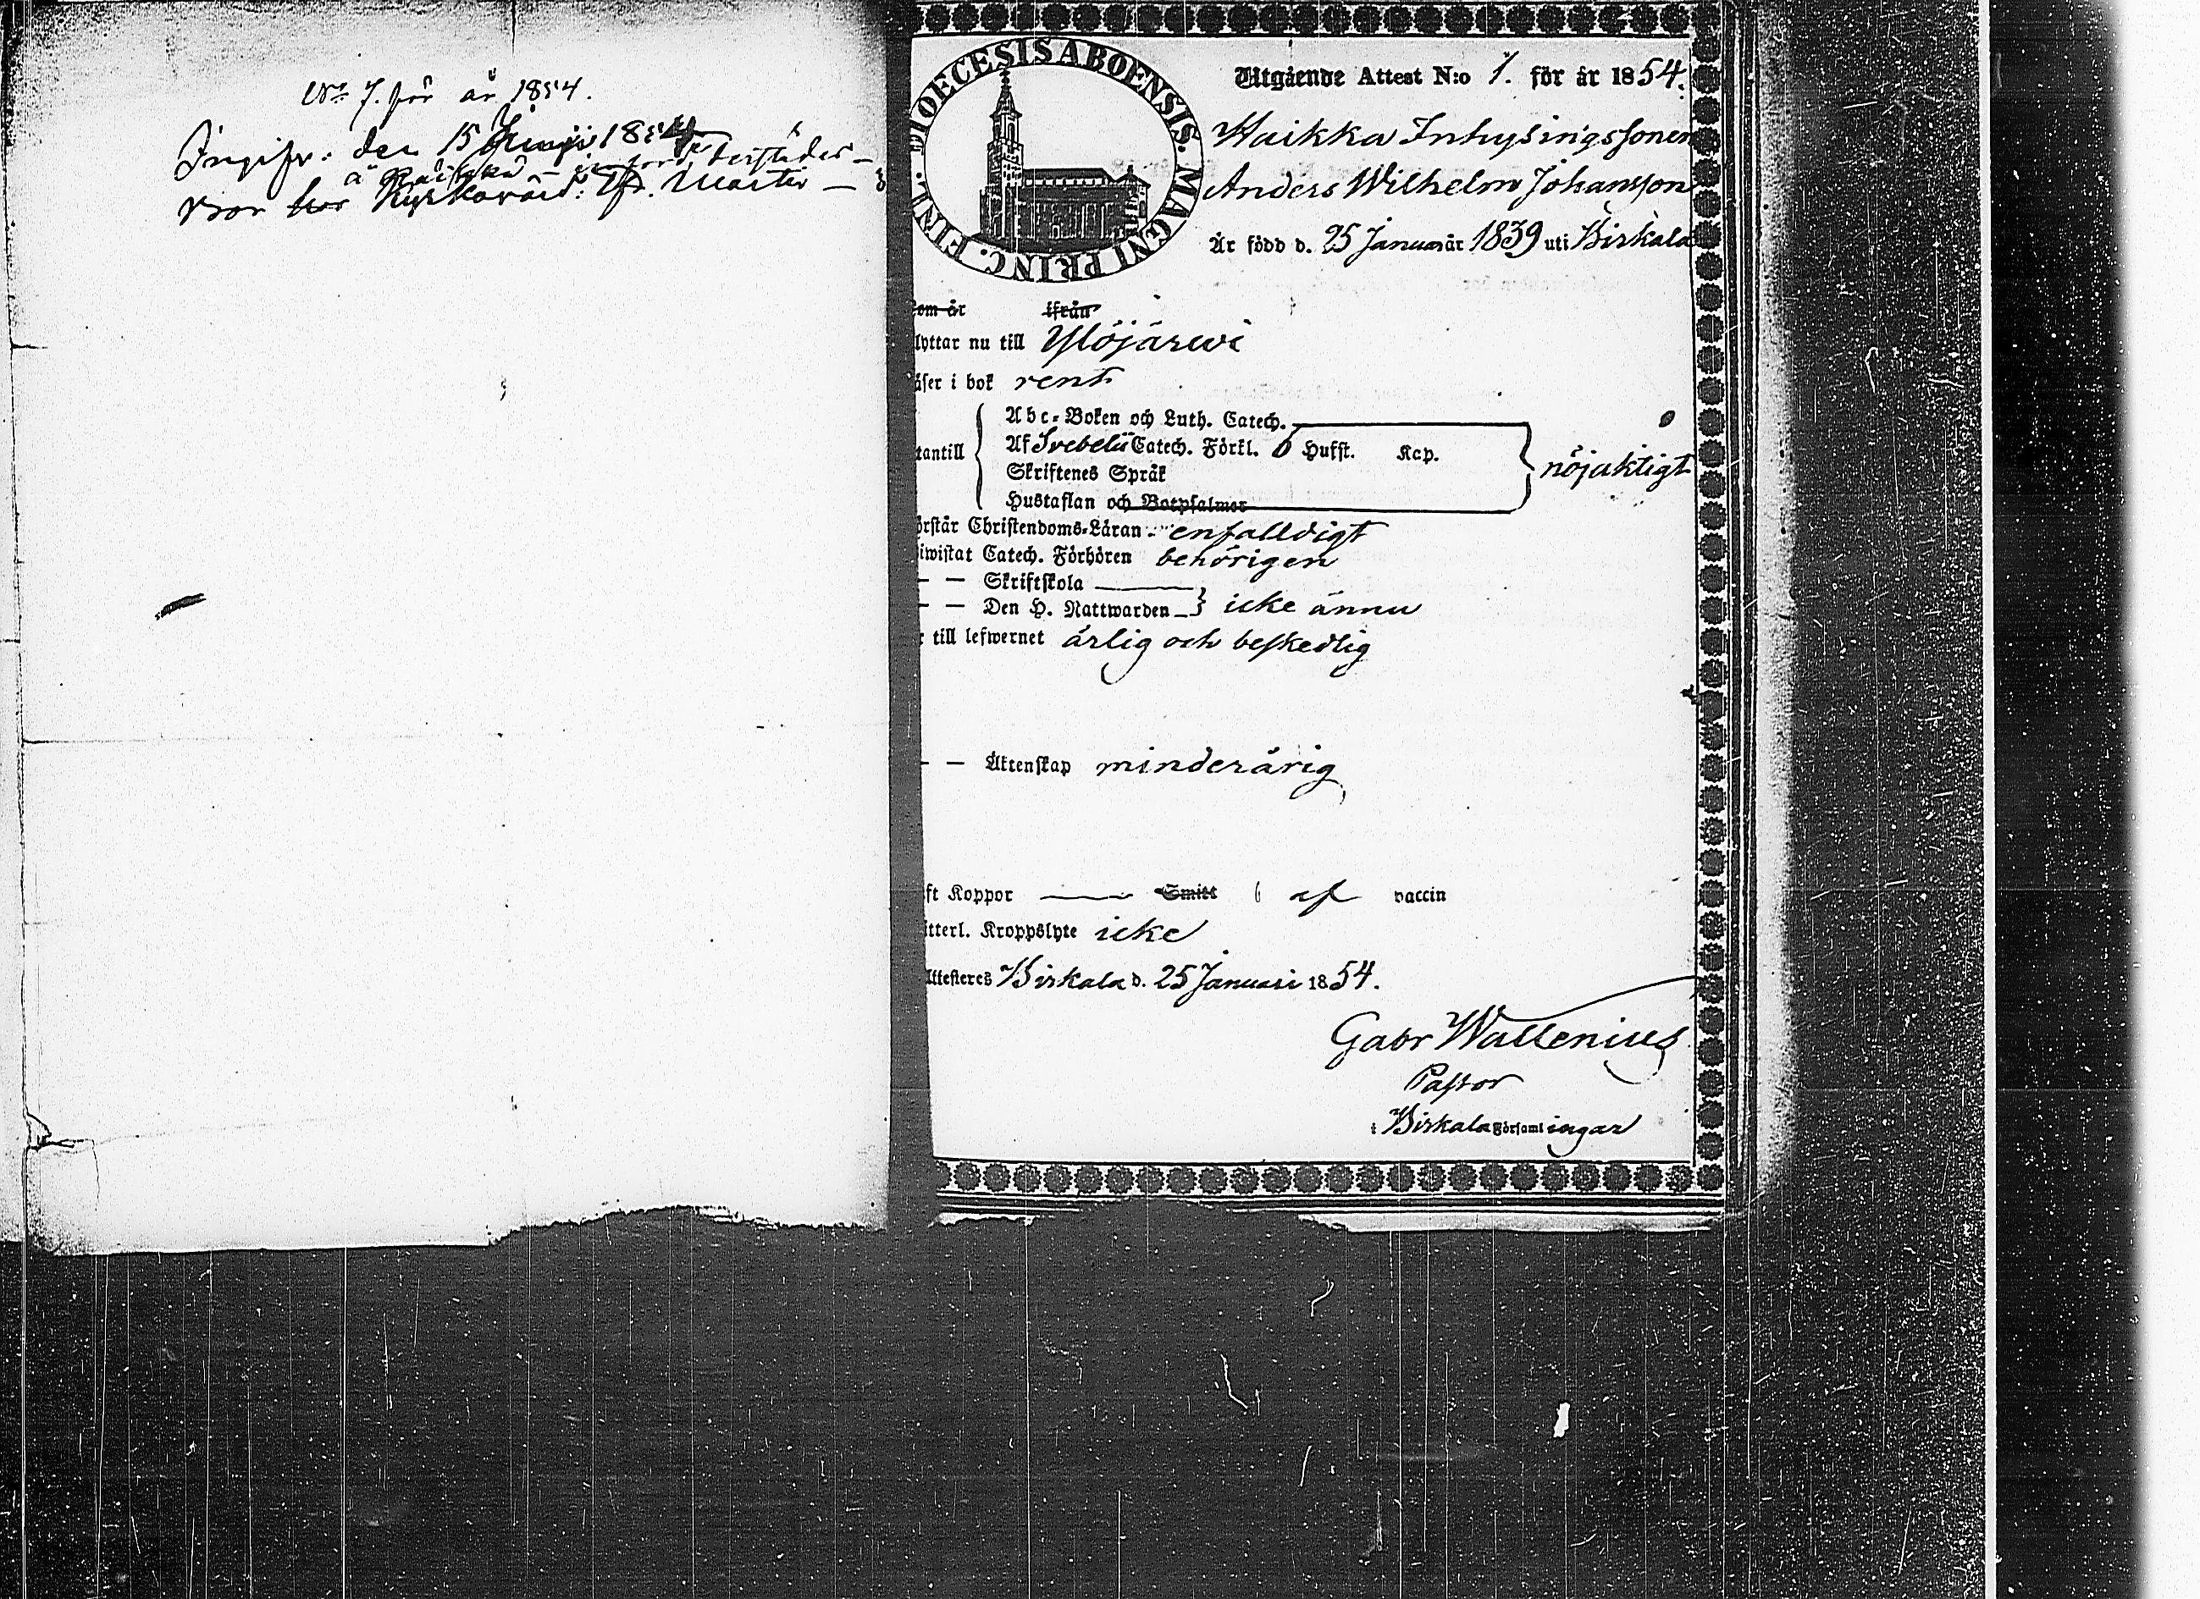 No 7. för år 1854.
den 15 1854
á
Kyrkovärd:
DIOECESIS ABOENSIS. MAGNI PRINC. FINL.
Utgående Attest N:o 1. för år 1854.
Haikka Inhysingssonen
Anders Wilhelm Johansson
Är född d. 25 Januari år 1839 uti Birkala
som är ifrån
lyttar nu till Ylöjärwi
äser i bok rent
Abc-Boken och Luth. Catech.
tantill Af Svebelii Catech. Förkl. 6 Hufst. Kap. nöjaktigt
Skriftenes Språk
Hustaflan och Botpsalmer
örstår Christendoms-Läran enfalldigt
iwistat Catech. Förhören behörigen
— — Skriftskola
— — Den H. Nattwarden icke ännu
r till lefwernet ärlig och beskedlig
— — Äktenskap minderårig
ft Koppor — Smitt af vaccin
itterl. Kroppslyte icke
Attesteres Birkala d. 25 Januari 1854.
Gabr Wallenius
Pastor
i Birkala Församlingar